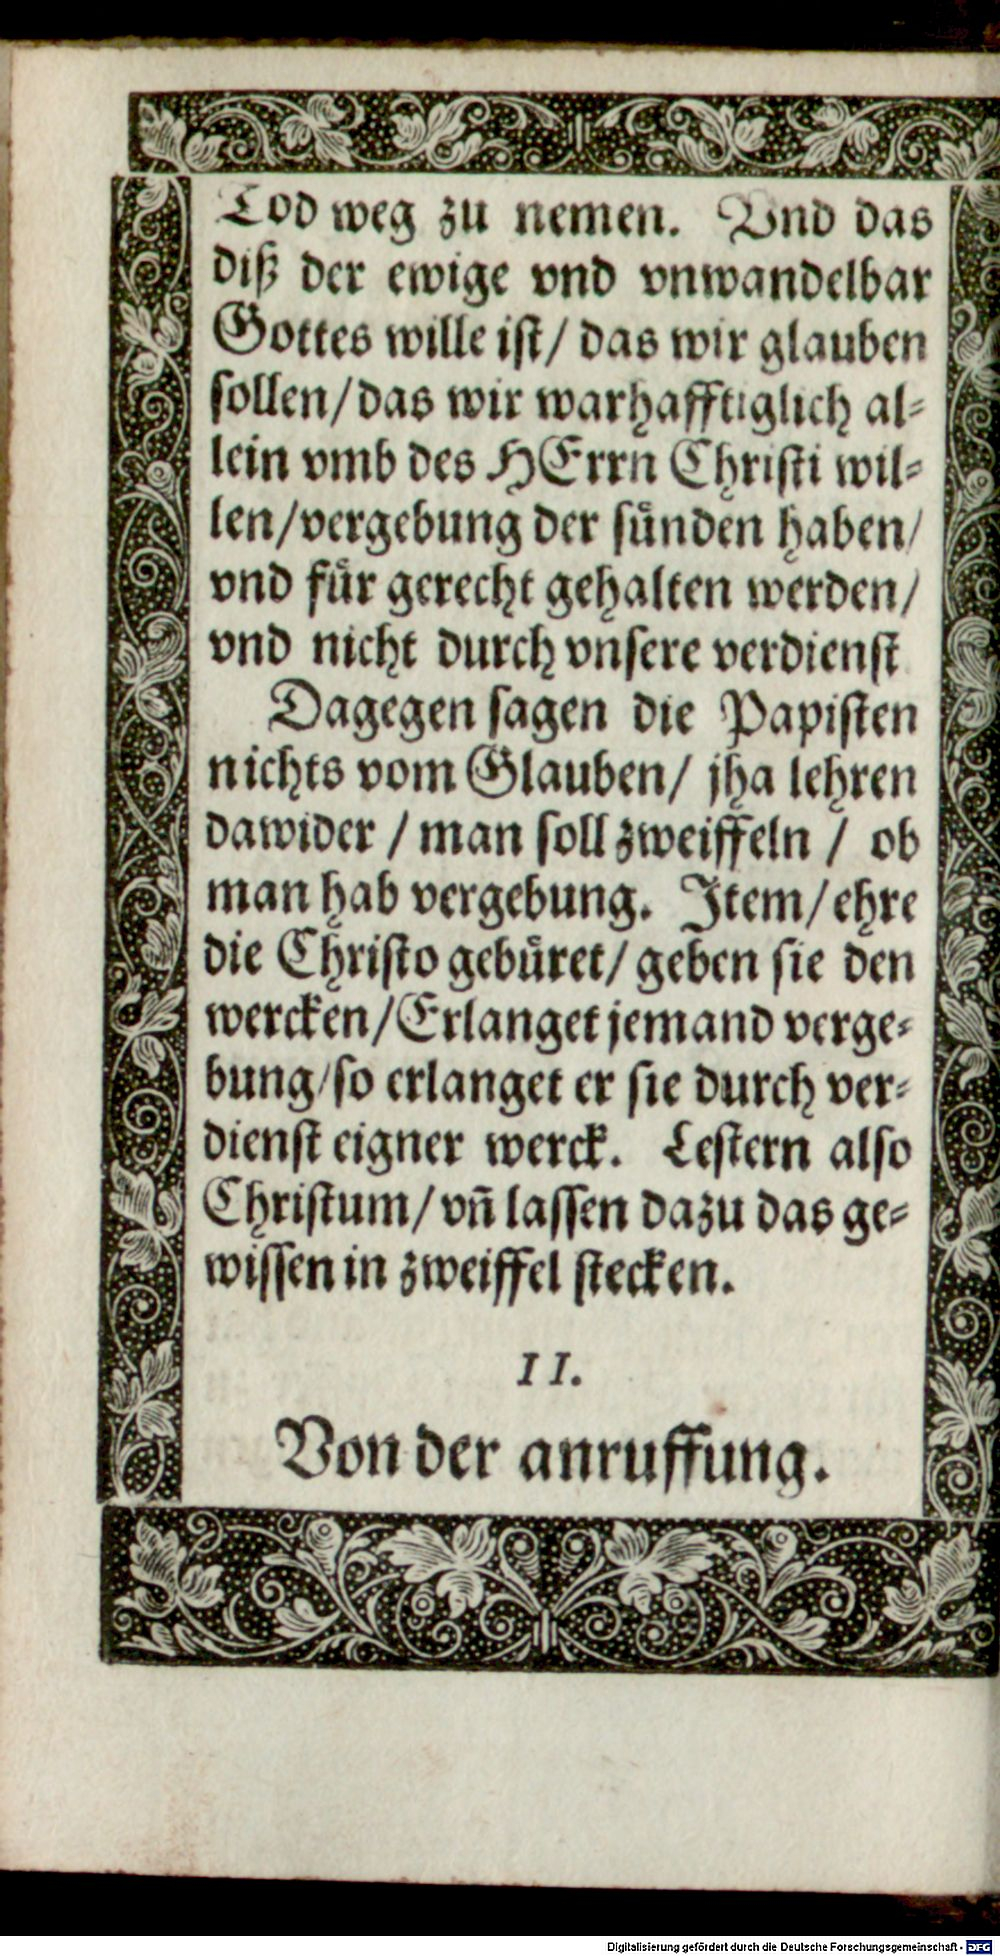 Tod weg zu nemen. Vnd das
diß der ewige vnd vnwandelbar
Gottes wille ist/ das wir glauben
sollen/das wir warhafftiglich al⸗
lein vmb des HErrn Christi wil⸗
len/vergebung der sünden haben/
vnd für gerecht gehalten werden/
vnd nicht durch vnsere verdienst
Dagegen sagen die Papisten
nichts vom Glauben/ jha lehren
dawider / man soll zweiffeln / ob
man hab vergebung. Item/ehre
die Christo gebüret/ geben sie den
wercken/Erlanget jemand verge⸗
bung/so erlanget er sie durch ver⸗
dienst eigner werck. Lestern also
Christum/ vñ lassen dazu das ge⸗
wissen in zweiffel stecken.
II.
Von der anruffung.
Digitalisierung gefördert durch die Deutsche Forschungsgemeinschaft - DFG